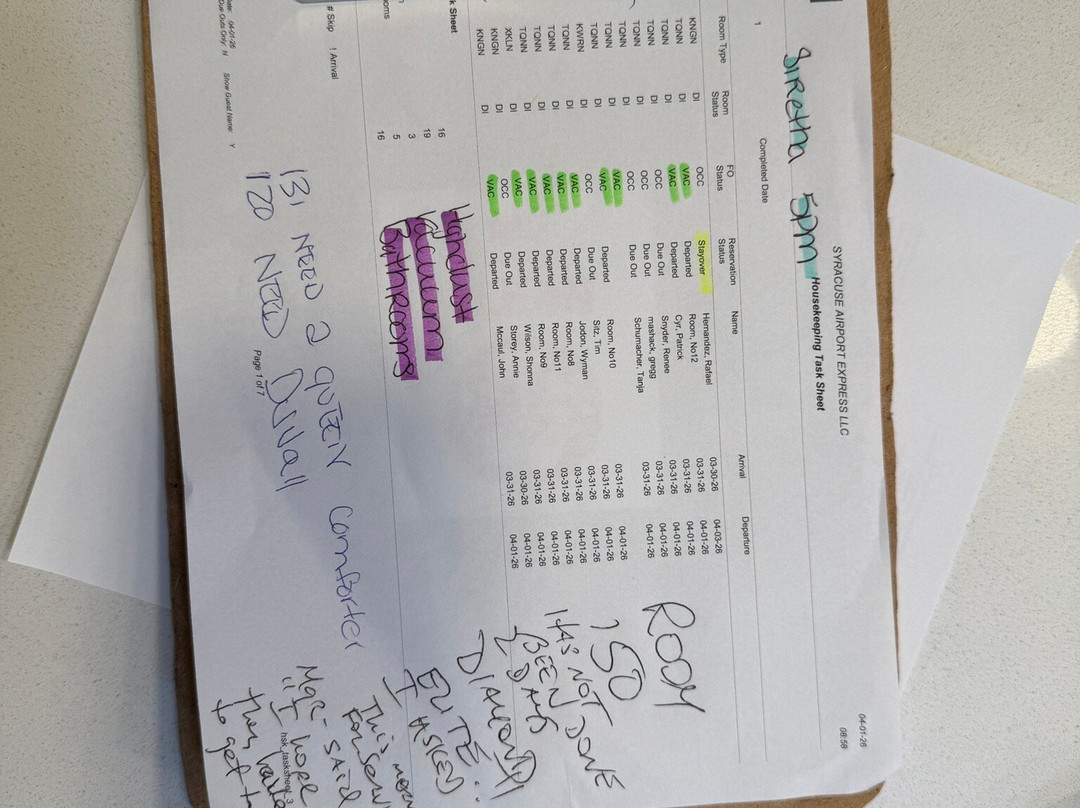 04-01-26
08:58
SYRACUSE AIRPORT EXPRESS LLC
Housekeeping Task Sheet
Siretha 5pm
1 Completed Date
Room Type Room Status FO Status Reservation Status Name Arrival Departure
KNGN DI OCC Stayover Hernandez, Rafael 03-30-26 04-03-26
TQNN DI VAC Departed Room, No12 03-31-26 04-01-26
TQNN DI VAC Departed Cyr, Patrick 03-31-26 04-01-26
TQNN DI OCC Due Out Snyder, Renee 03-31-26 04-01-26
TQNN DI OCC Due Out mashack, gregg 03-31-26 04-01-26
TQNN DI OCC Due Out Schumacher, Tanja 03-31-26 04-01-26
TQNN DI VAC
TQNN DI VAC Departed Room, No10 03-31-26 04-01-26
KWRN DI OCC Due Out Sitz, Tim 03-31-26 04-01-26
TQNN DI VAC Departed Jodon, Wyman 03-31-26 04-01-26
TQNN DI VAC Departed Room, No8 03-31-26 04-01-26
TQNN DI VAC Departed Room, No11 03-31-26 04-01-26
TQNN DI VAC Departed Room, No9 03-31-26 04-01-26
XKLN DI VAC Departed Wilson, Shonna 03-31-26 04-01-26
KNGN DI OCC Due Out Storey, Annie 03-30-26 04-01-26
KNGN DI VAC Departed Mccaul, John 03-31-26 04-01-26
ROOM
150
HAS NOT DONE
BEEN
2 DAYS
DIAMOND
ELITE..
I ASKED
This
For
Mgr. said
I hope
they
to get
k Sheet
16
19
3
5
16
Highdust
Vacuum
Bathrooms
# Skip ! Arrival
131 NEED 2 QUEEN comforter
120 NEED Duvall
Page 1 of 7
hsk_tasksheet_3
04-01-26
Due Outs Only: N Show Guest Name: Y